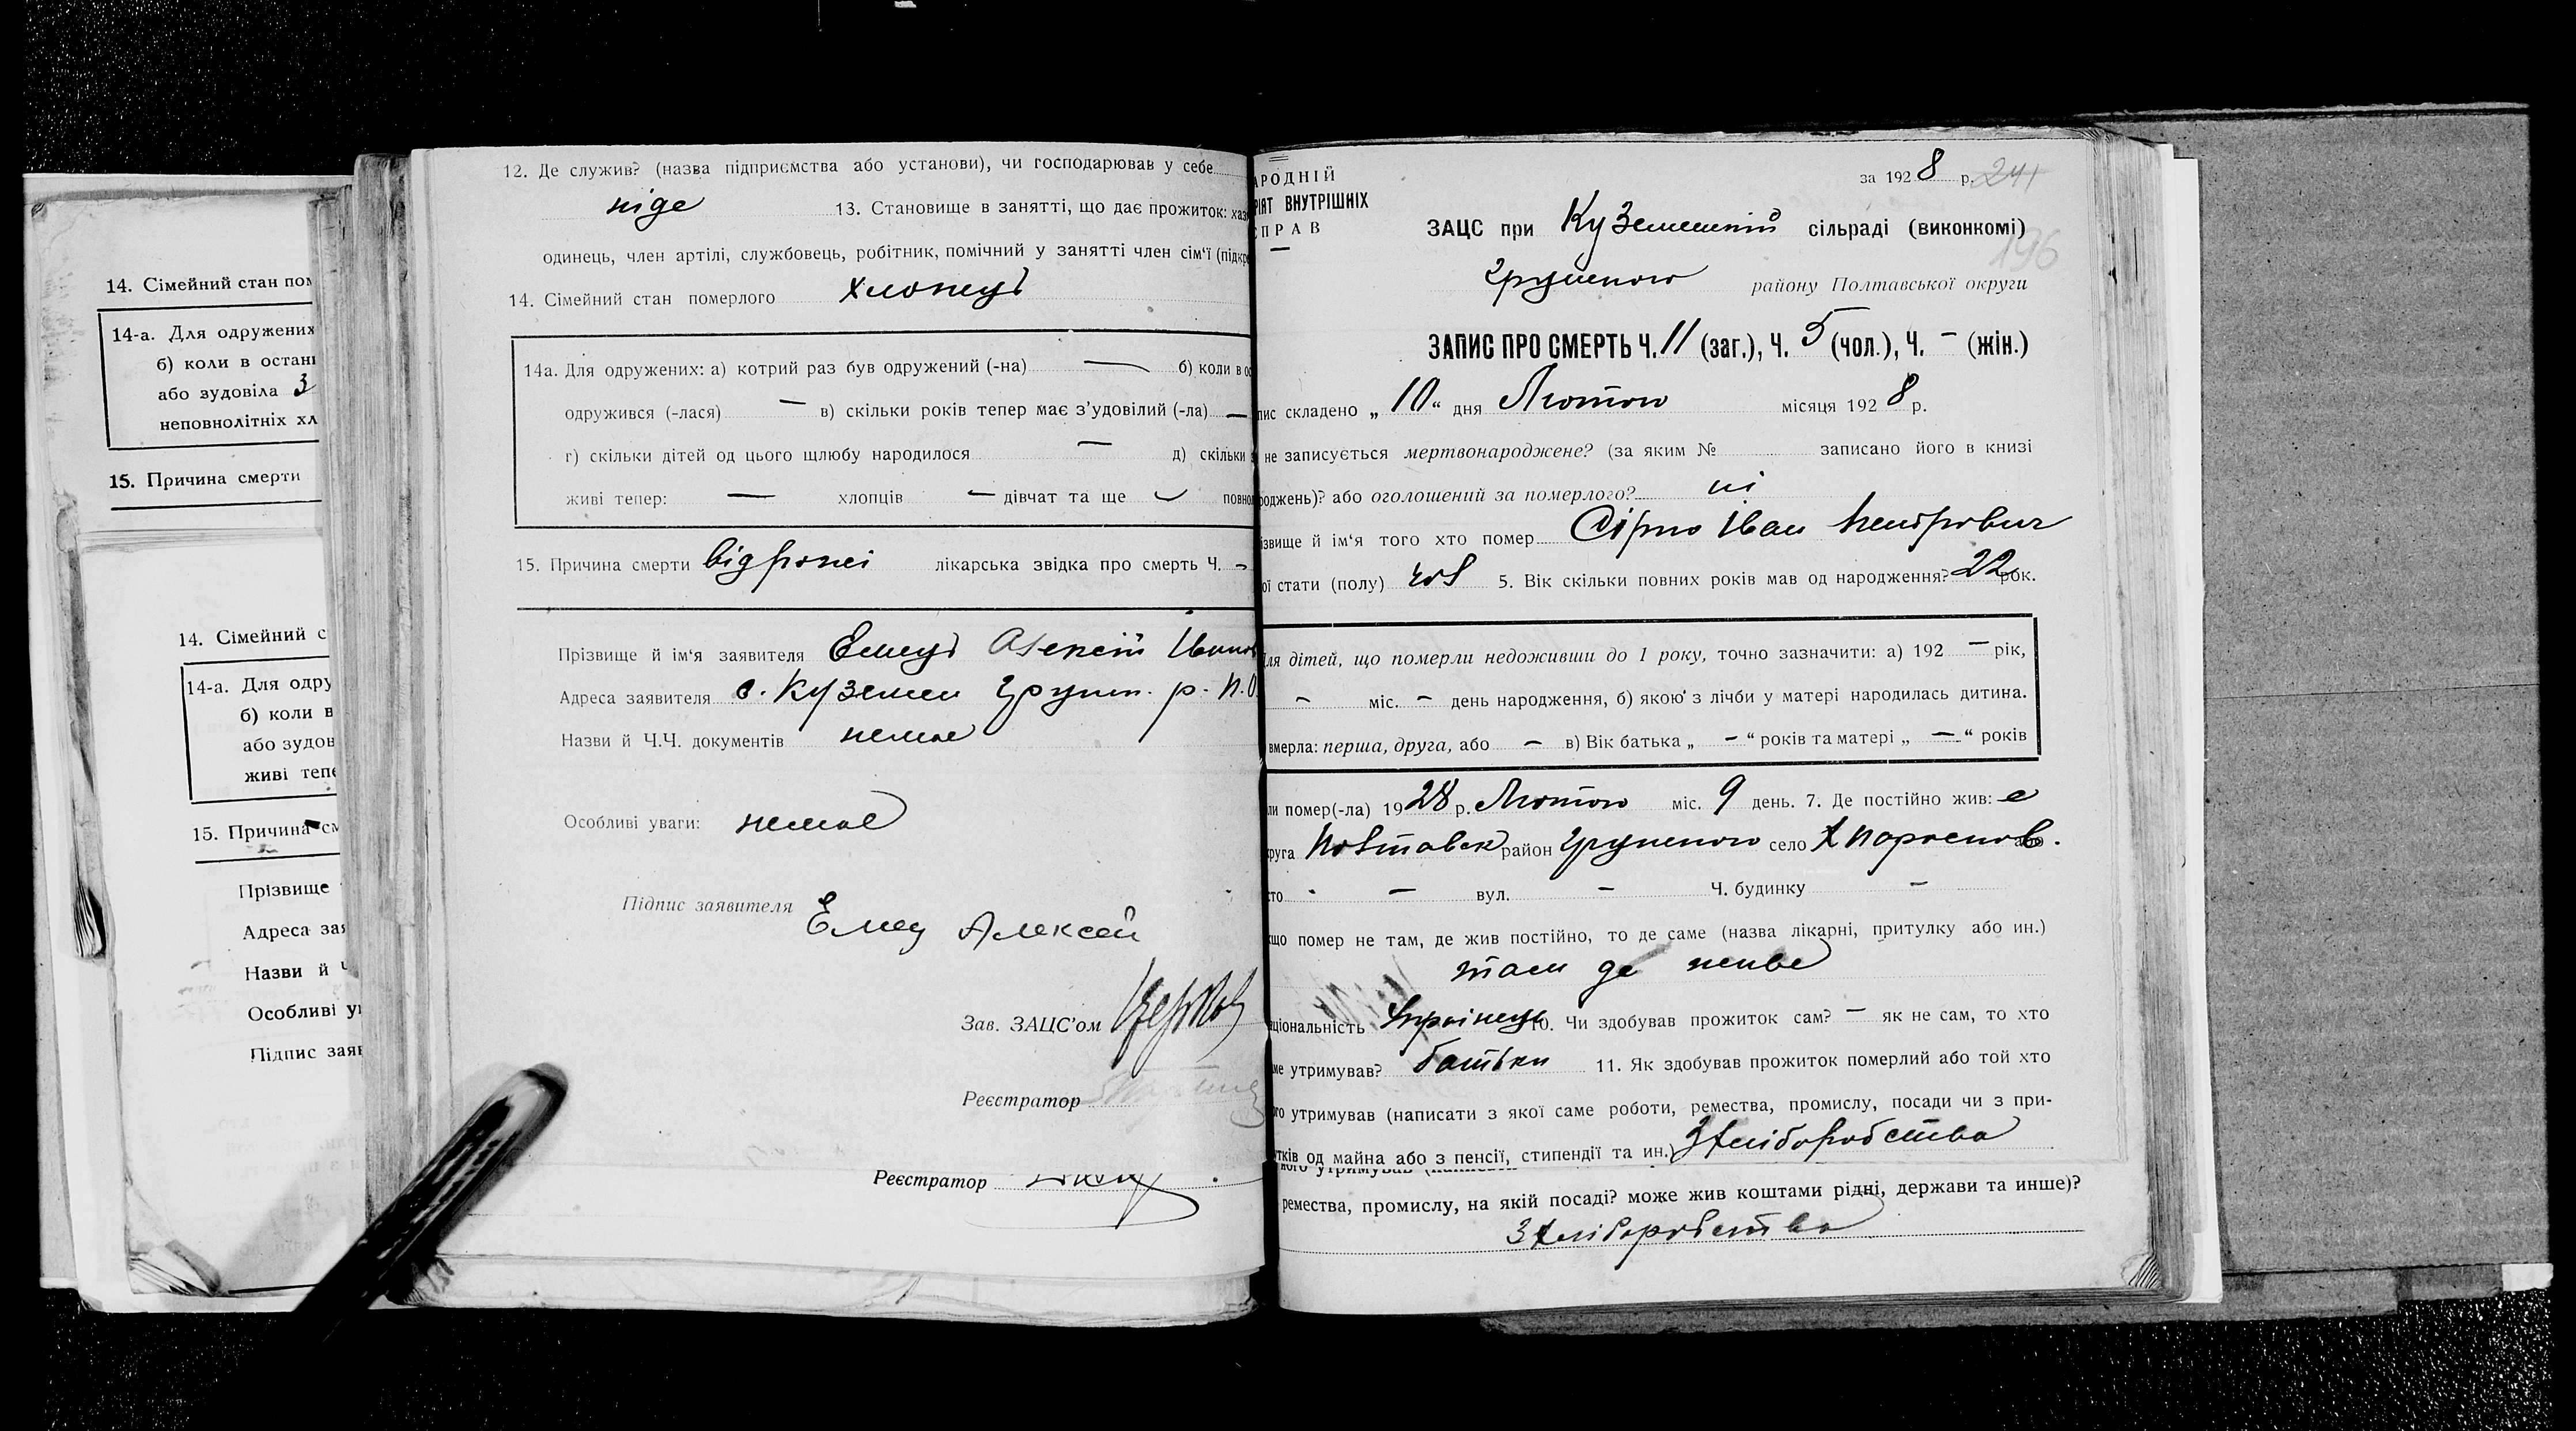 14. Сімейний стан пом
14-а. Для одружених
б) коли в остан
або зудовіла 3
неповнолітніх хл
15. Причина смерти
14. Сімейний с
14-а. Для одру
б) коли в
або зудов
живі тепе
15. Причина см
Прізвище
Адреса зая
Назви й Ч
Особливі ув
Підпис заяв
12. Де служив? (назва підприємства або установи), чи господарював у себе
ніде 13. Становище в занятті, що дає прожиток: хаз
одинець, член артілі, службовець, робітник, помічний у занятті член сім'ї (підкр
14. Сімейний стан померлого хлопець
14а. Для одружених: а) котрий раз був одружений (-на) — б) коли в ос
одружився (-лася) — в) скільки років тепер має з'удовілий (-ла) —
г) скільки дітей од цього щлюбу народилося — д) скільки з
живі тепер: — хлопців — дівчат та ще — повнол
15. Причина смерти лікарська звідка про смерть Ч. -
Прізвище й ім'я заявителя Емець Алексій Іванов
Адреса заявителя с. Куземен Грунск. р. П.О
Назви й Ч.Ч. документів немає
Особливі уваги: немає
Підпис заявителя Емец Алексей
Зав. ЗАЦС'ом
Реєстратор
Реєстратор
АРОДНІЙ
РІЯТ ВНУТРІШНІХ
СПРАВ
за 1928 р. 241
ЗАЦС при Куземській сільраді (виконкомі)
196
Грунського району Полтавської округи
ЗАПИС ПРО СМЕРТЬ Ч. 11 (заг.), Ч. 5 (чол.), Ч. - (жін.)
пис складено „10“ дня Лютого місяця 1928 р.
не записується мертвонароджене? (за яким № записано його в книзі
роджень)? або оголошений за померлого? ні
ізвище й ім'я того хто помер Сірко Іван Петрович
ої стати (полу) чол 5. Вік скільки повних років мав од народження? 22 рок.
ля дітей, що померли недоживши до 1 року, точно зазначити: а) 192 — рік,
- міс. - день народження, б) якою з лічби у матері народилась дитина.
вмерла: перша, друга, або - в) Вік батька „-“ років та матері „-“ років
ли помер(-ла) 1928 р. Лютого міс. 9 день. 7. Де постійно жив:
руга Полтавск район Грунского село або
сто - — вул. — Ч. будинку —
кщо помер не там, де жив постійно, то де саме (назва лікарні, притулку або ин.)
там де живе
ціональність Українець 10. Чи здобував прожиток сам? — як не сам, то хто
ме утримував? батьки 11. Як здобував прожиток померлий або той хто
го утримував (написати з якої саме роботи, ремества, промислу, посади чи з при-
тків од майна або з пенсії, стипендії та ин.) З хліборобства
ремества, промислу, на якій посаді? може жив коштами рідні, держави та инше)?
З хліборобства